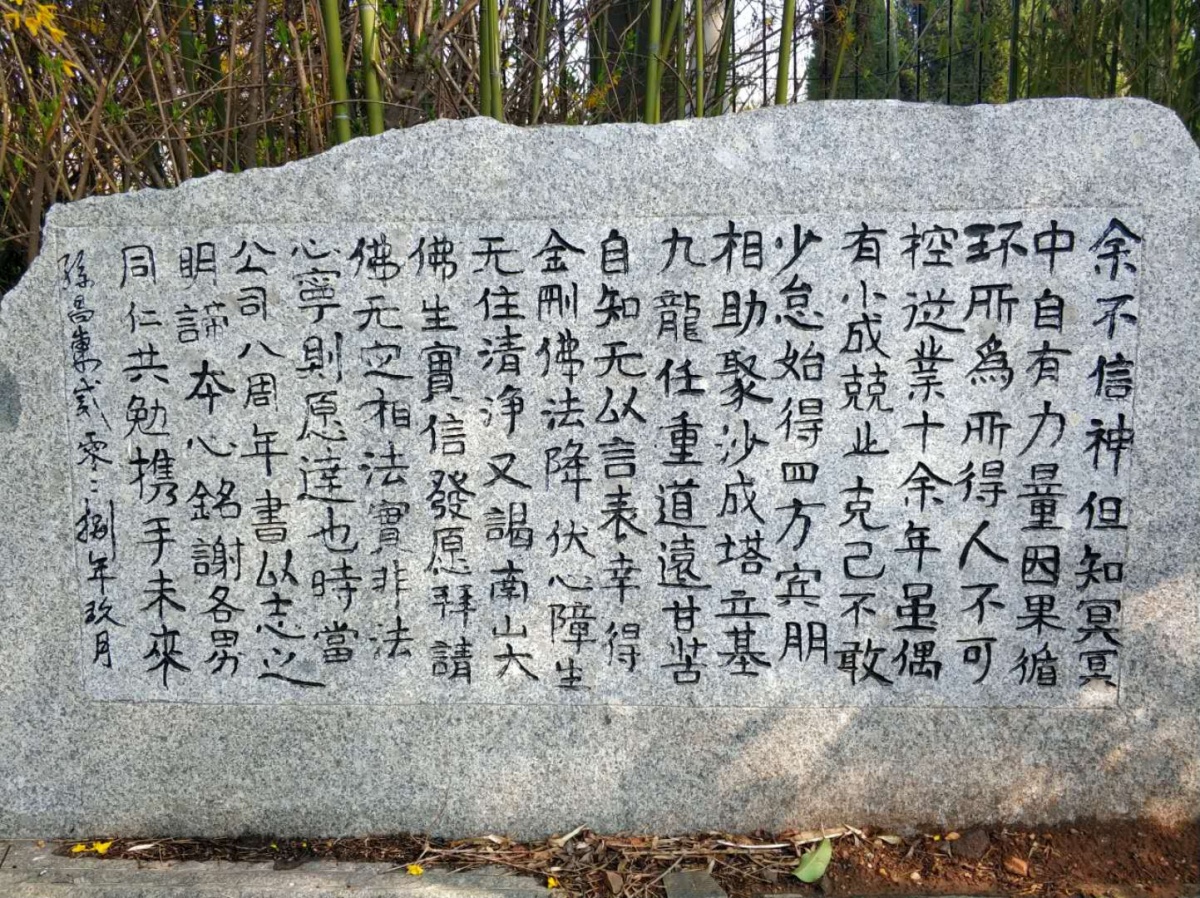 余不信神但知冥冥
中自有力量因果循
环所為所得人不可
控從業十余年虽偶
有小成兢业克己不敢
少怠始得四方宾朋
相助聚沙成塔立基
九龍任重道遠甘苦
自知无以言表幸得
金刚佛法降伏心障生
无住清浄又謁南山大
佛生實信發愿拜請
佛无定相法實非法
心寧則愿達也時當
公司八周年書以志之
明諦本心銘謝各界
同仁共勉携手未來
孫昌東貳零〻捌年玖月